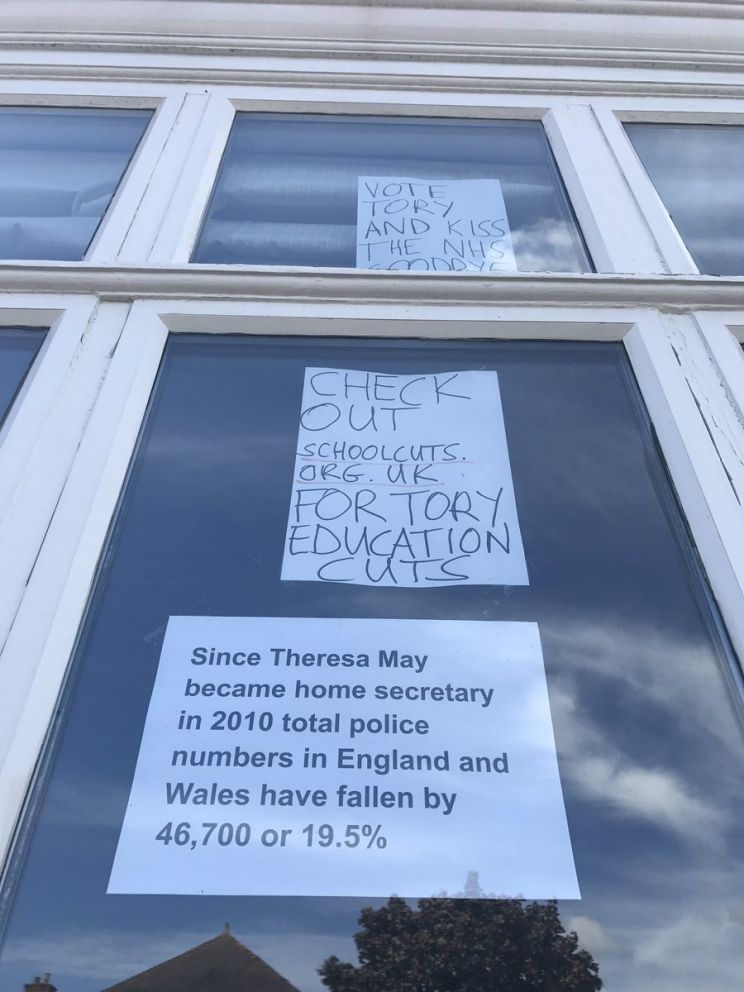 VOTE
TORY
AND KISS
THE NHS
GOODBYE
CHECK
OUT
SCHOOLCUTS.
ORG.UK
FOR TORY
EDUCATION
CUTS
Since Theresa May
became home secretary
in 2010 total police
numbers in England and
Wales have fallen by
46,700 or 19.5%